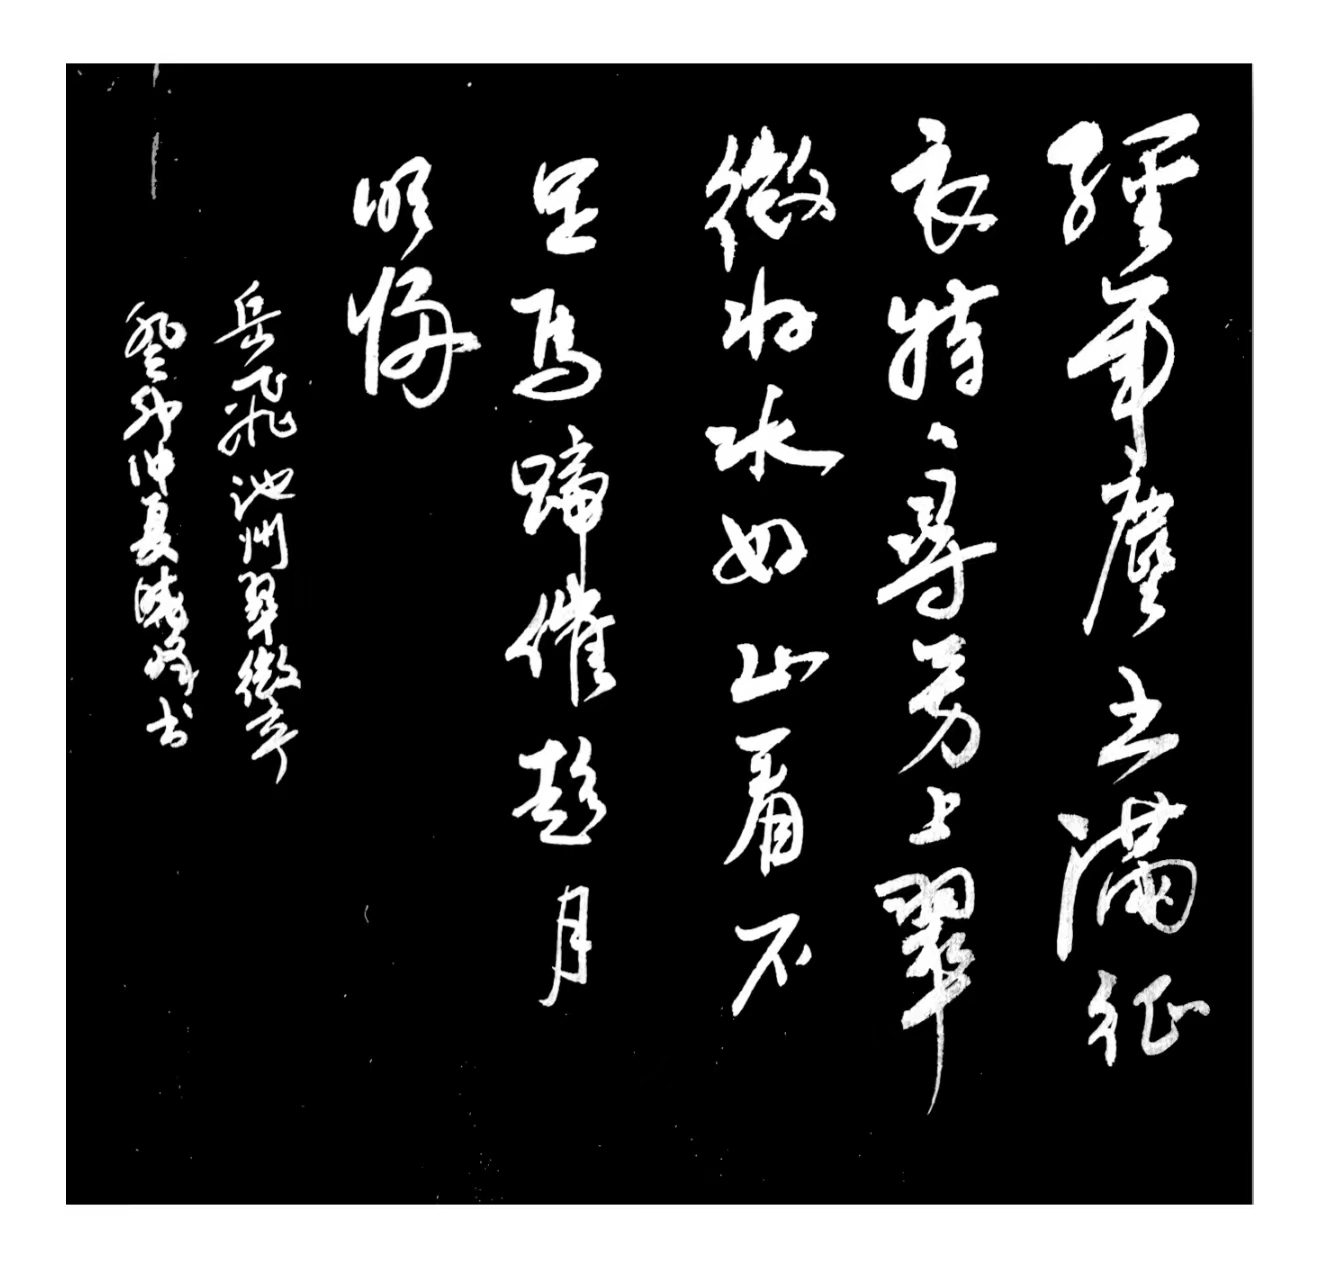 經年塵土滿征
衣特〻尋芳上翠
微好水好山看不
足馬蹄催趁月
明歸
岳飛池州翠微亭
癸卯仲夏曉峰书